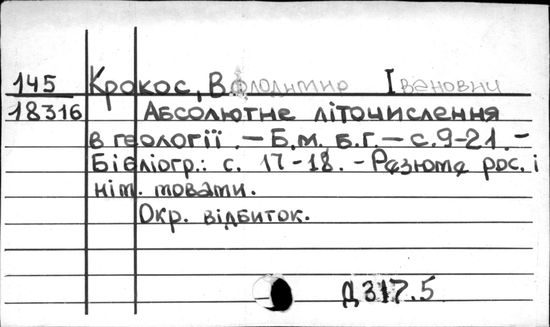 145 Крокос, Володимир Іванович
18316 Абсолютне літочислення
в геології. — Б.м. б.г. — с. 9-21. —
Бібліогр.: с. 17-18. — Резюме рос. і
нім. мовами.
Окр. відбиток.
Д 317.5